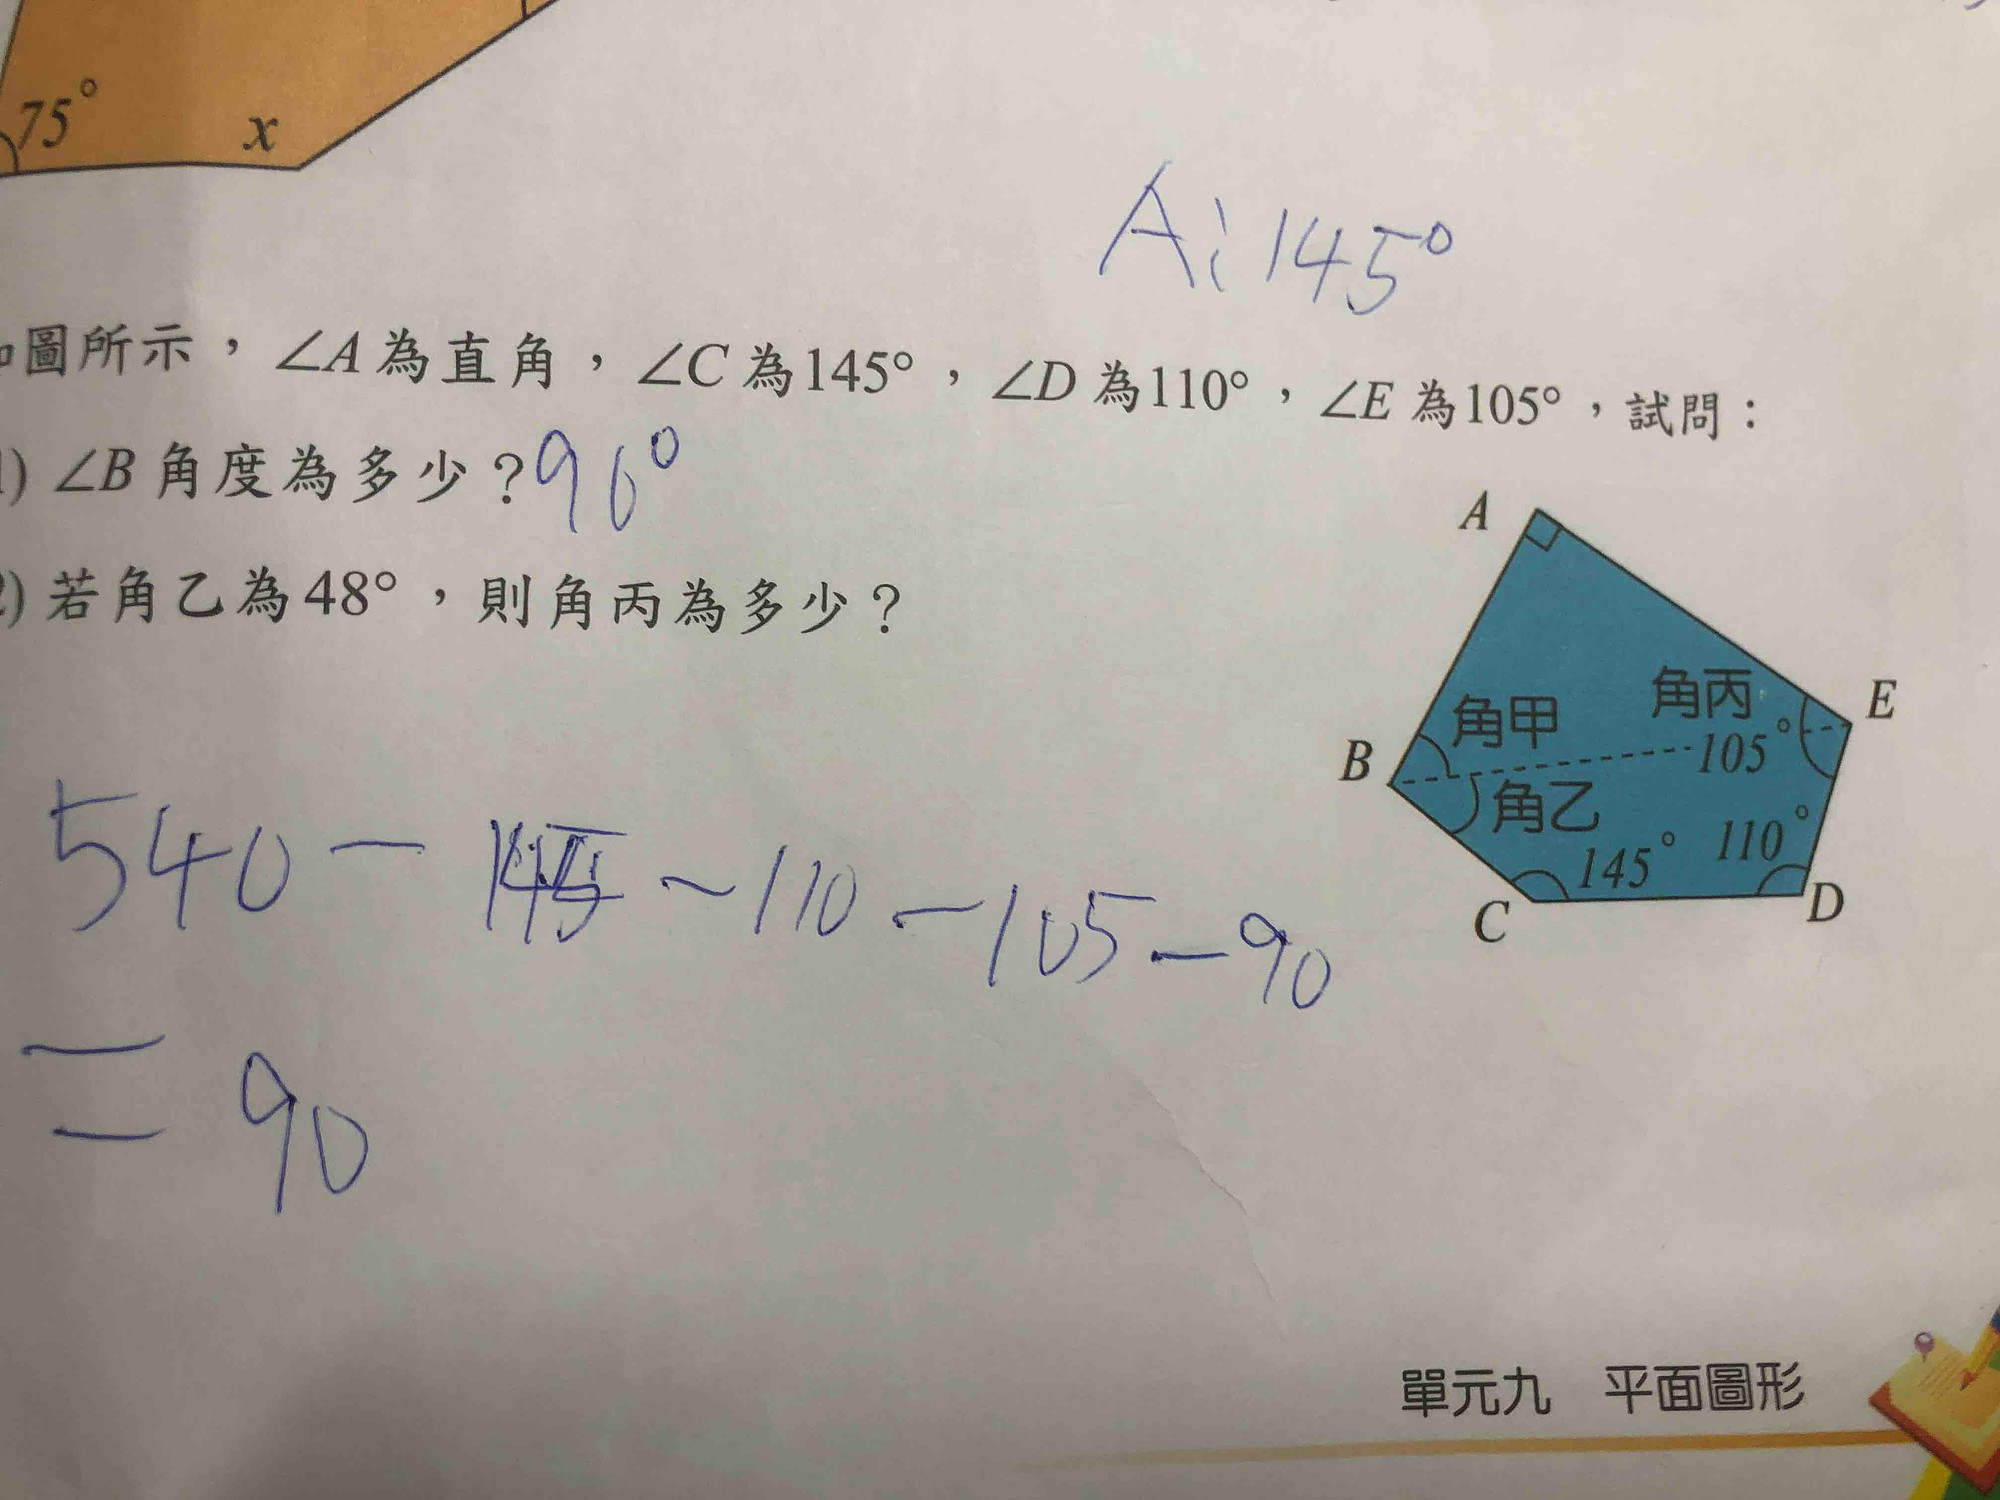 75°
x
A: 145°
圖所示，∠A為直角，∠C為145°，∠D為110°，∠E為105°，試問：
) ∠B角度為多少？90°
) 若角乙為48°，則角丙為多少？
A
角丙
E
角甲
105°
B
角乙
145° 110°
C
D
540 - 145 - 110 - 105 - 90
= 90
單元九 平面圖形